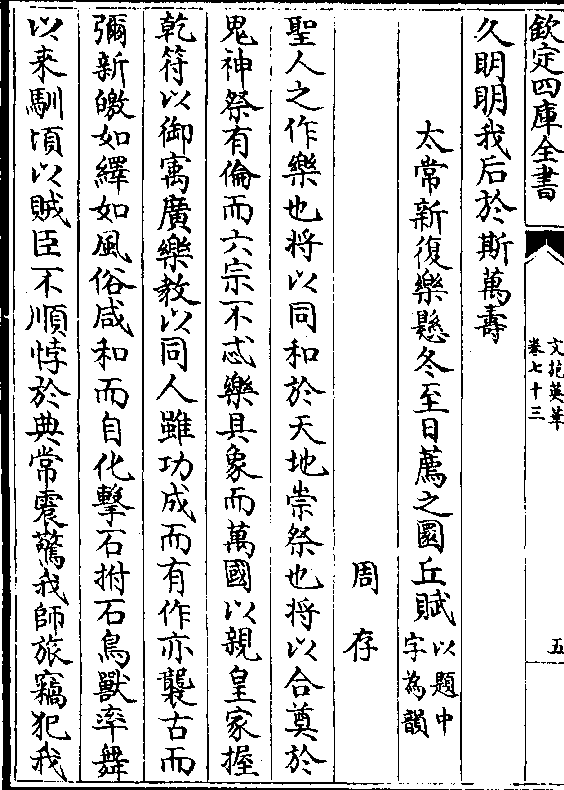 欽定四庫全書
文苑英華
卷七十三
五
久明明我后於斯萬壽
太常新復樂懸冬至日薦之圜丘賦以題中字為韻
周存
聖人之作樂也将以同和於天地崇祭也将以合奠於
鬼神祭有倫而六宗不忒樂具象而萬國以親皇家握
乾符以御寓廣樂教以同人雖功成而有作亦襲古而
彌新皦如繹如風俗咸和而自化擊石拊石鳥獸率舞
以来馴頃以賊臣不順悖於典常震驚我師旅竊犯我